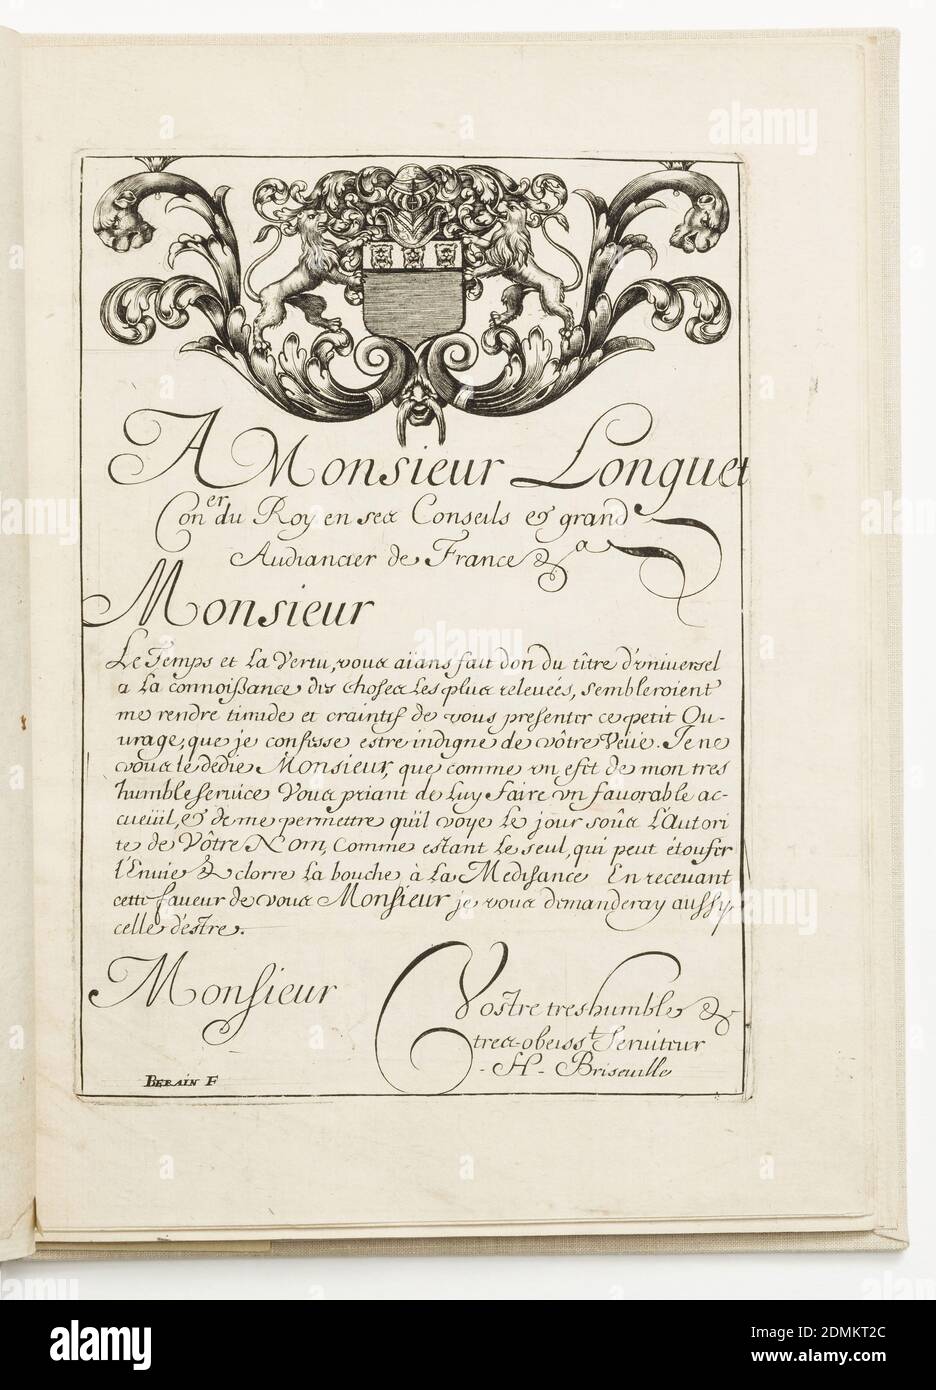 A Monsieur Longuet
Con.er du Roy en ses Conseils & grand
Audiancier de France &a
Monsieur
Le Temps et La Vertu, vous aïans fait don du tître d'vniversel
a La connoißance des choses Les plus relevées, sembleroient
me rendre timide et craintif de vous presenter ce petit Ou-
urage, que je confesse estre indigne de vôtre Veüe. Je ne
vous le dedie Monsieur, que comme vn efet de mon tres
humble service Vous priant de Luy faire vn favorable ac-
cueüil, & de me permettre qu'il voye Le jour soûs L'Autori
te de Vôtre Nom, Comme estant Le seul, qui peut étoufer
l'Envie & clorre La bouche à La Medisance En recevant
cette faveur de vous Monsieur je vous demanderay aussy,
celle d'estre.
Monsieur
Vostre tres humble &
tres-obeisst. Serviteur
-H- Briseville
BERAIN F
alamy
www.alamy.com
Image ID: 2DMKT2C